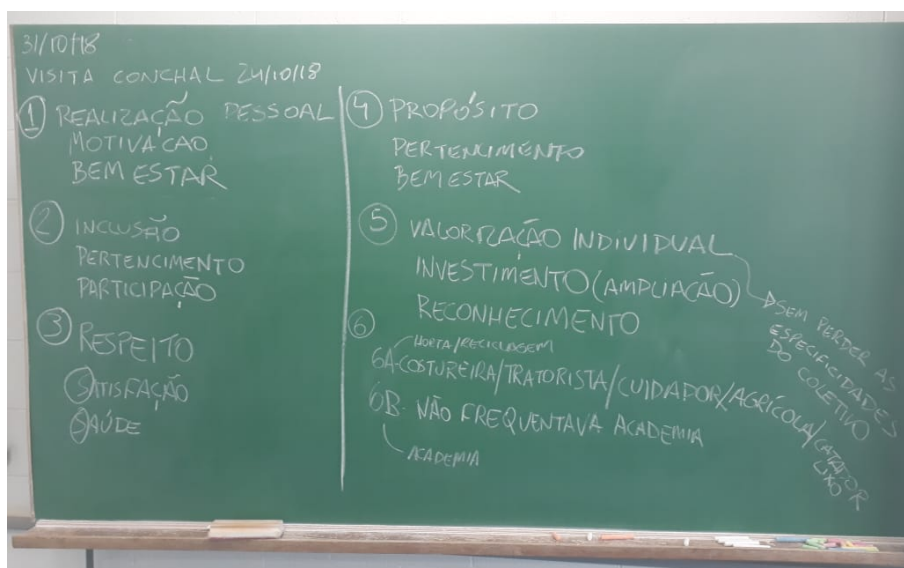 31/10/18
VISITA CONCHAL 24/10/18
1 REALIZAÇÃO PESSOAL
MOTIVAÇAO
BEM ESTAR
2 INCLUSÃO
PERTENCIMENTO
PARTICIPAÇÃO
3 RESPEITO
SATISFAÇÃO
SAÚDE
4 PROPÓSITO
PERTENCIMENTO
BEM ESTAR
5 VALORIZAÇÃO INDIVIDUAL
INVESTIMENTO (AMPLIAÇÃO)
RECONHECIMENTO
SEM PERDER AS
ESPECIFICIDADES
DO COLETIVO
6
HORTA/RECICLAGEM
6A-COSTUREIRA/TRATORISTA/CUIDADOR/AGRÍCOLA/CATADOR
LIXO
6B- NÃO FREQUENTAVA ACADEMIA
ACADEMIA